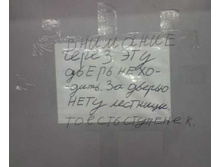 ВНИМАНИЕ
через эту
дверь не хо-
дить. За дверью
НЕТУ лестницы
ТО ЕСТЬ СТУПЕНЕК.